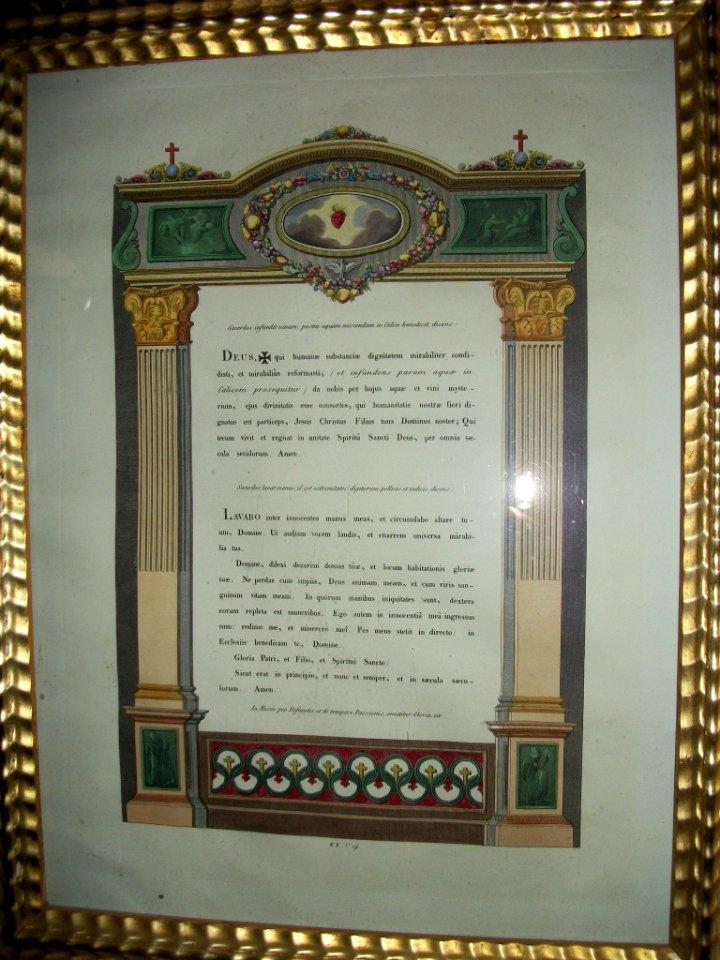 Sacerdos infundit vinum, postea aquam miscendam in Calice benedicit, dicens:
DEUS, ✠ qui humanæ substantiæ dignitatem mirabiliter condi-
disti, et mirabiliùs reformasti; (et infundens parum aquæ in
Calicem prosequitur) da nobis per hujus aquæ et vini myste-
rium, ejus divinitatis esse consortes, qui humanitatis nostræ fieri di-
gnatus est particeps, Jesus Christus Filius tuus Dominus noster; Qui
tecum vivit et regnat in unitate Spiritû Sancti Deus, per omnia sæ-
cula seculorum. Amen.
Sacerdos lavat manus, id est extremitates digitorum pollicis et indicis dicens:
LAVABO inter innocentes manus meas, et circumdabo altare tu-
um, Domine. Ut audiam vocem laudis, et enarrem universa mirabi-
lia tua.
Domine, dilexi decorem domus tuæ, et locum habitationis gloriæ
tuæ. Ne perdas cum impiis, Deus animam meam, et cum viris san-
guinum vitam meam. In quorum manibus iniquitates sunt, dextera
eorum repleta est muneribus. Ego autem in innocentiâ meâ ingressus
sum: redime me, et miserere meî. Pes meus stetit in directo: in
Ecclesiis benedicam te, Domine.
Gloria Patri, et Filio, et Spiritui Sancto:
Sicut erat in principio, et nunc et semper, et in sæcula sæcu-
lorum. Amen.
In Missis pro Defunctis et de tempore Passionis, omittitur Gloria, etc.